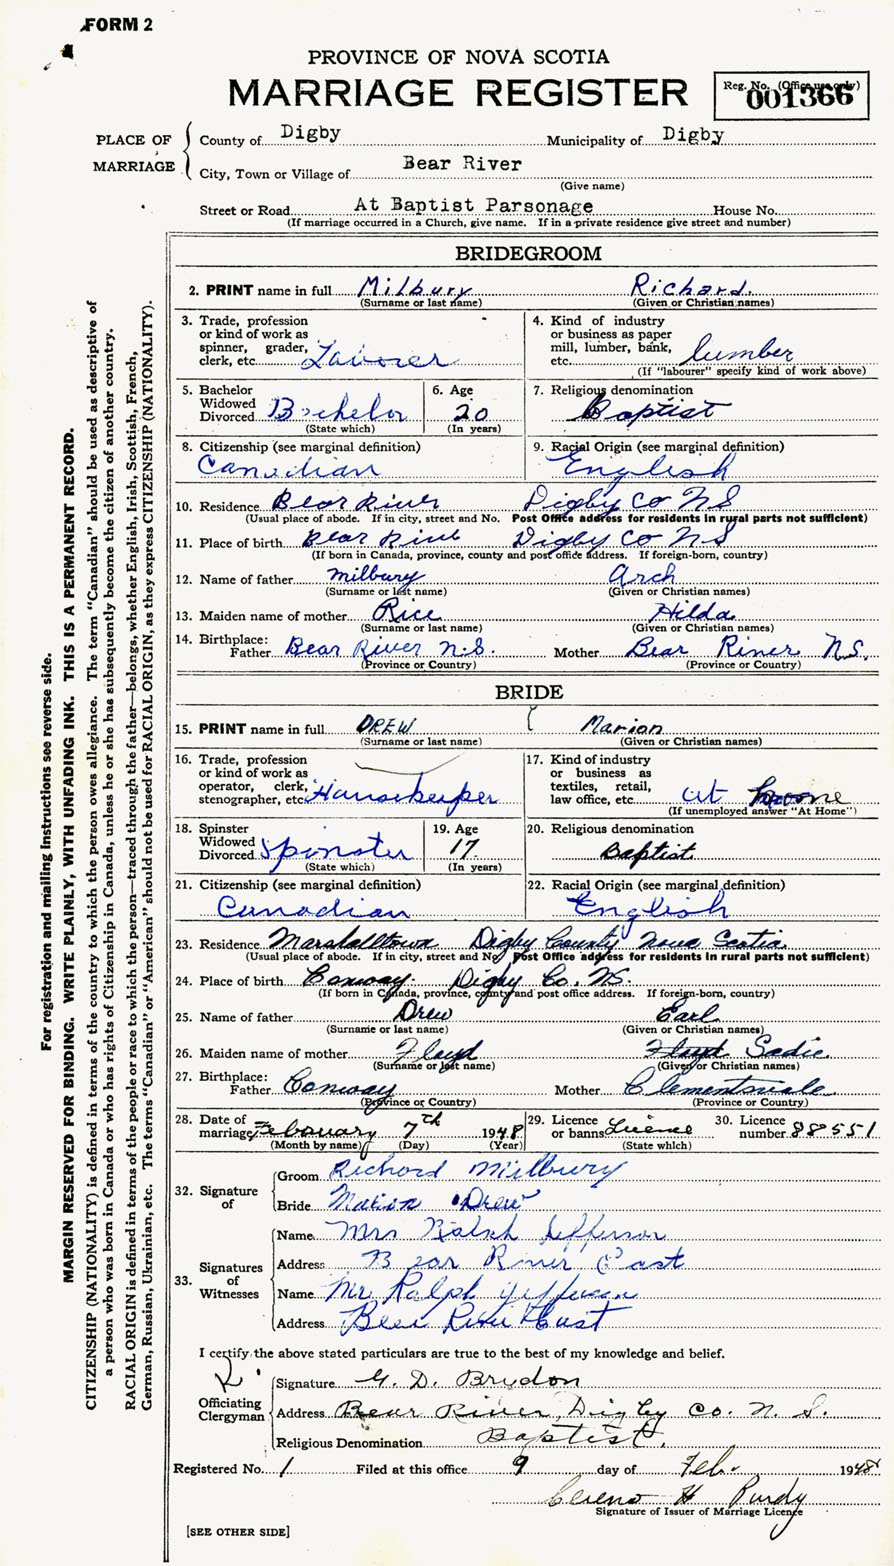 FORM 2
PROVINCE OF NOVA SCOTIA
MARRIAGE REGISTER
Reg. No. (Office use only)
001366
PLACE OF MARRIAGE
County of Digby Municipality of Digby
City, Town or Village of Bear River
(Give name)
Street or Road At Baptist Parsonage House No.
(If marriage occurred in a Church, give name. If in a private residence give street and number)
BRIDEGROOM
2. PRINT name in full Milbury Richard
(Surname or last name) (Given or Christian names)
3. Trade, profession or kind of work as spinner, grader, clerk, etc. Laborer
4. Kind of industry or business as paper mill, lumber, bank, etc. lumber
(If "labourer" specify kind of work above)
5. Bachelor Widowed Divorced Bachelor
(State which)
6. Age 20
(In years)
7. Religious denomination
Baptist
8. Citizenship (see marginal definition)
Canadian
9. Racial Origin (see marginal definition)
English
10. Residence Bear River Digby Co NS
(Usual place of abode. If in city, street and No. Post Office address for residents in rural parts not sufficient)
11. Place of birth Bear River Digby Co NS
(If born in Canada, province, county and post office address. If foreign-born, country)
12. Name of father Milbury Arch
(Surname or last name) (Given or Christian names)
13. Maiden name of mother Rice Hilda
(Surname or last name) (Given or Christian names)
14. Birthplace:
Father Bear River N.S. Mother Bear River N.S.
(Province or Country) (Province or Country)
BRIDE
15. PRINT name in full DREW Marion
(Surname or last name) (Given or Christian names)
16. Trade, profession or kind of work as operator, clerk, stenographer, etc. Housekeeper
17. Kind of industry or business as textiles, retail, law office, etc. at home
(If unemployed answer "At Home")
18. Spinster Widowed Divorced Spinster
(State which)
19. Age 17
(In years)
20. Religious denomination
Baptist
21. Citizenship (see marginal definition)
Canadian
22. Racial Origin (see marginal definition)
English
23. Residence Marshalltown Digby County Nova Scotia
(Usual place of abode. If in city, street and No. Post Office address for residents in rural parts not sufficient)
24. Place of birth Conway Digby Co. NS.
(If born in Canada, province, county and post office address. If foreign-born, country)
25. Name of father Drew Earl
(Surname or last name) (Given or Christian names)
26. Maiden name of mother Floyd Floyd Sadie
(Surname or last name) (Given or Christian names)
27. Birthplace:
Father Conway Mother Clementsvale
(Province or Country) (Province or Country)
28. Date of marriage February 7th 1948
(Month by name) (Day) (Year)
29. Licence or banns Licence
(State which)
30. Licence number 88551
32. Signature of
Groom Richard Milbury
Bride Marion Drew
33. Signatures of Witnesses
Name Mrs Ralph Jefferson
Address Bear River East
Name Mr Ralph Jefferson
Address Bear River East
I certify the above stated particulars are true to the best of my knowledge and belief.
Officiating Clergyman
Signature G. D. Brydon
Address Bear River, Digby Co. N. S.
Religious Denomination Baptist.
Registered No. 1 Filed at this office 9 day of Feb. 1948
Cereno H Purdy
Signature of Issuer of Marriage Licence
[SEE OTHER SIDE]
For registration and mailing instructions see reverse side.
MARGIN RESERVED FOR BINDING. WRITE PLAINLY, WITH UNFADING INK. THIS IS A PERMANENT RECORD.
CITIZENSHIP (NATIONALITY) is defined in terms of the country to which the person owes allegiance. The term "Canadian" should be used as descriptive of
a person who was born in Canada or who has rights of Citizenship in Canada, unless he or she has subsequently become the citizen of another country.
RACIAL ORIGIN is defined in terms of the people or race to which the person—traced through the father—belongs, whether English, Irish, Scottish, French,
German, Russian, Ukrainian, etc. The terms "Canadian" or "American" should not be used for RACIAL ORIGIN, as they express CITIZENSHIP (NATIONALITY).